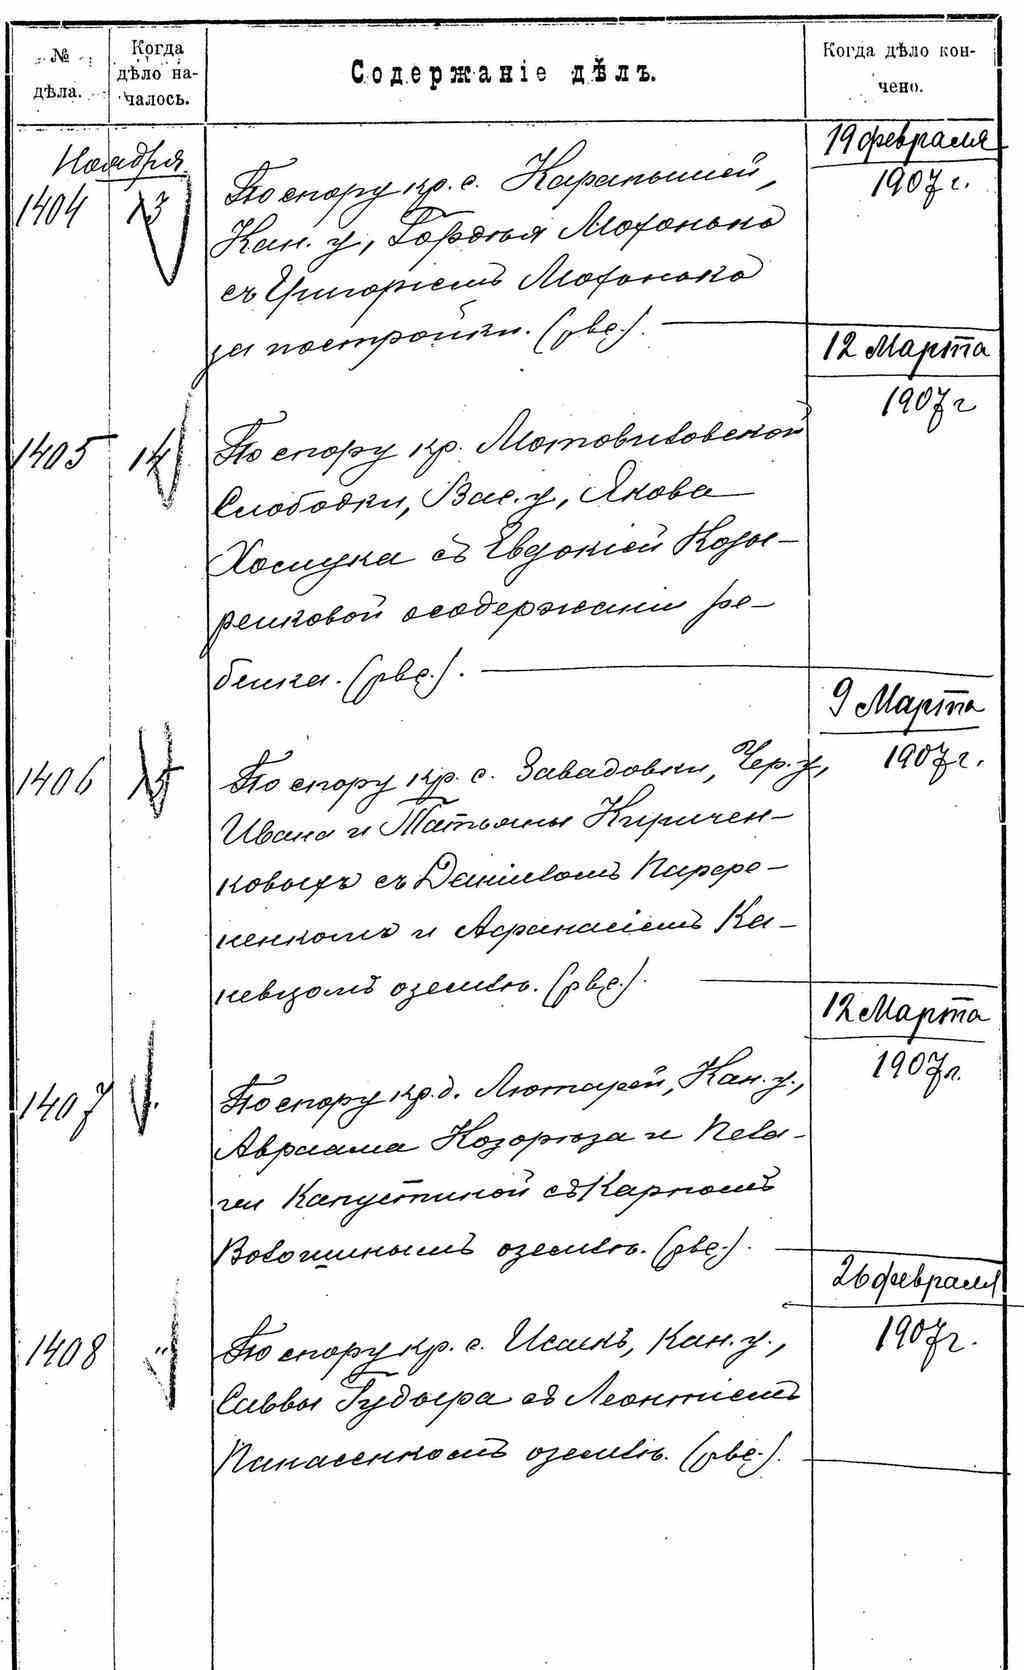 № дѣла.
Когда дѣло на-
чалось.
Содержаніе дѣлъ.
Когда дѣло кон-
чено.
Ноября
1404 13
По спору кр. с. Карапышей,
Кан. у., Гордѣя Мотонько
съ Григоріемъ Мотонько
за постройки. (рвс.).
19 февраля
1907 г.
1405 14
По спору кр. Мотовиловской
Слободки, Вас. у., Якова
съ Евдокіей Козы-
ренковой о содержаніи ре-
бенка. (рвс.).
12 Марта
1907 г
1406 15
По спору кр. с. Завадовки, Чер. у.,
Ивана и Татьяны Киричен-
ковыхъ съ Даніиломъ Парфе-
ненкомъ и Афанасіемъ Ка-
невцомъ о землѣ. (рвс.).
9 Марта
1907 г.
1407 "
По спору кр. д. Лютарей, Кан. у.,
Авраама Козорѣза и Пела-
геи Капустиной съ Карпомъ
Волошинымъ о землѣ. (рвс.).
12 Марта
1907 г.
1408 "
По спору кр. с. Исаекъ, Кан. у.,
Саввы Гудыра съ Леонтіемъ
Панасенкомъ о землѣ. (рвс.).
26 февраля
1907 г.